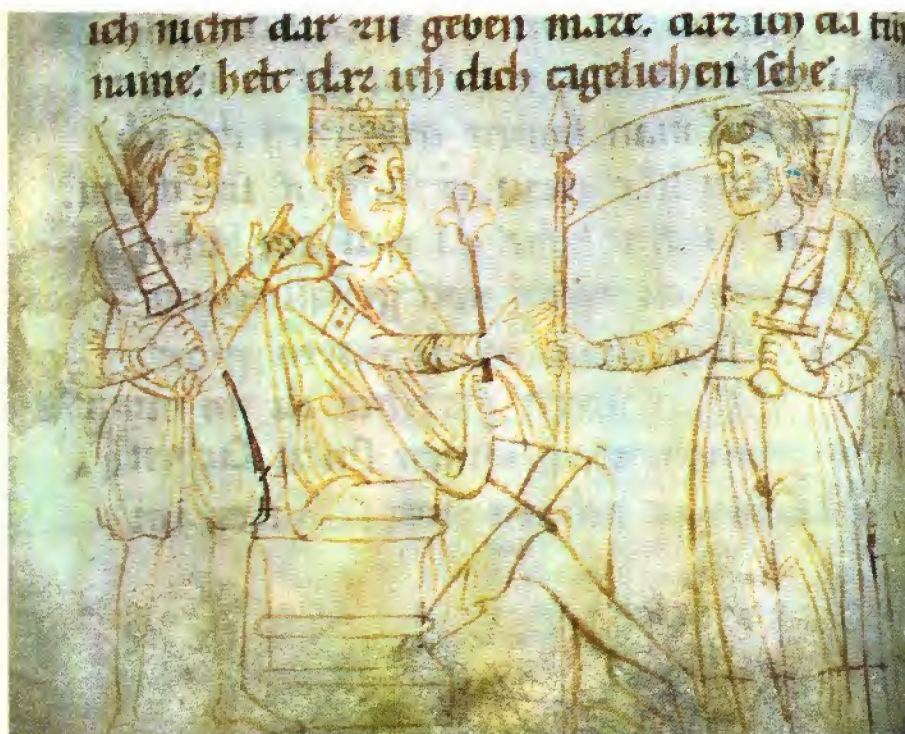 ich nicht dar zu geben mare. daz ich da
name. helt daz ich dich tagelichen sehe.